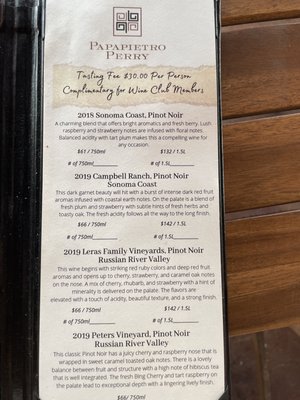 PAPAPIETRO
PERRY
Tasting Fee $30.00 Per Person
Complimentary for Wine Club Members
2018 Sonoma Coast, Pinot Noir
A charming blend that offers bright aromatics and fresh berry. Lush
raspberry and strawberry notes are infused with floral notes.
Balanced acidity with tart plum makes this a compelling wine for
any occasion.
$61 / 750ml $132 / 1.5L
# of 750ml # of 1.5L
2019 Campbell Ranch, Pinot Noir
Sonoma Coast
This dark garnet beauty will hit with a burst of intense dark red fruit
aromas infused with coastal earth notes. On the palate is a blend of
fresh plum and strawberry with subtle hints of fresh herbs and
toasty oak. The fresh acidity follows all the way to the long finish.
$66 / 750ml $142 / 1.5L
# of 750ml # of 1.5L
2019 Leras Family Vineyards, Pinot Noir
Russian River Valley
This wine begins with striking red ruby colors and deep red fruit
aromas and opens up to cherry, strawberry, and caramel oak notes
on the nose. A mix of cherry, rhubarb, and strawberry with a hint of
minerality is delivered on the palate. The flavors are
elevated with a touch of acidity, beautiful texture, and a strong finish.
$66 / 750ml $142 / 1.5L
# of 750ml # of 1.5L
2019 Peters Vineyard, Pinot Noir
Russian River Valley
This classic Pinot Noir has a juicy cherry and raspberry nose that is
wrapped in sweet caramel toasted oak notes. There is a lovely
balance between fruit and structure with a high note of hibiscus tea
that is well integrated. The fresh Bing Cherry and tart raspberry on
the palate lead to exceptional depth with a lingering lively finish.
$66/ 750ml